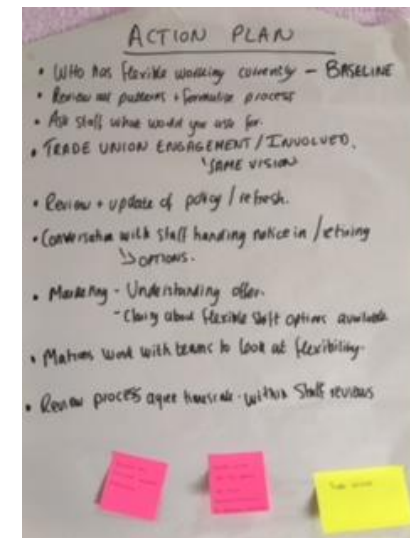 ACTION PLAN
• WHO has flexible working currently – BASELINE
• Review all patterns + formalise process
• Ask staff what would you use for.
• TRADE UNION ENGAGEMENT / INVOLVED.
SAME VISION
• Review + update of policy / refresh.
• Conversation with staff handing notice in / retiring
OPTIONS.
• Marketing - Understanding offer.
- Clarity about flexible shift options available
• Matrons work with teams to look at flexibility.
• Review process agree timescale - within staff reviews